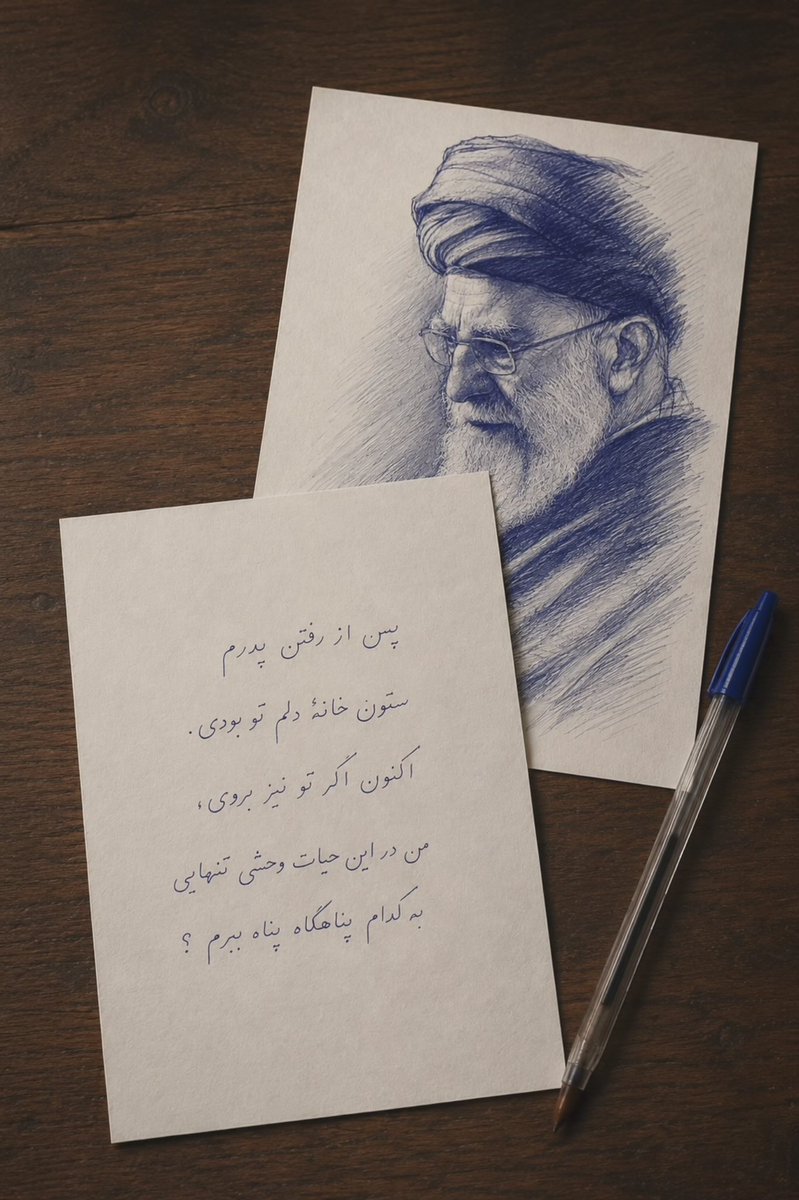 پس از رفتن پدرم
ستون خانهٔ دلم تو بودی.
اکنون اگر تو نیز بروی،
من در این حیات وحشی تنهایی
به کدام پناهگاه پناه ببرم ؟